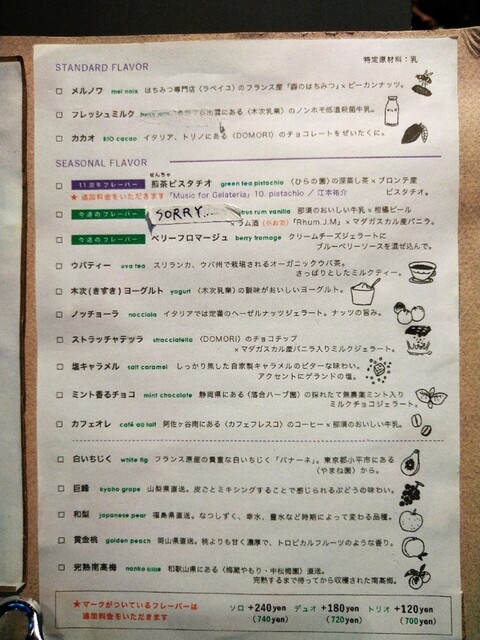 STANDARD FLAVOR
特定原材料：乳
□ メルノワ mel noix はちみつ専門店〈ラベイユ〉のフランス産「森のはちみつ」×ピーカンナッツ。
□ フレッシュミルク 出雲にある〈木次乳業〉のノンホモ低温殺菌牛乳。
□ カカオ BIO cacao イタリア、トリノにある〈DOMORI〉のチョコレートをぜいたくに。
SEASONAL FLAVOR
せんちゃ
□ 11周年フレーバー 煎茶ピスタチオ green tea pistachio 〈ひらの園〉の深蒸し茶×ブロンテ産
★追加料金をいただきます 「Music for Gelateria」10. pistachio ／ 江本祐介 ピスタチオ。
□ 今週のフレーバー SORRY... rus rum vanilla 那須のおいしい牛乳×柑橘ピール
×ラム酒(※お酒)「Rhum.J.M」×マダガスカル産バニラ。
□ 今週のフレーバー ベリーフロマージュ berry fromage クリームチーズジェラートに
ブルーベリーソースを混ぜ込んで。
□ ウバティー uva tea スリランカ、ウバ州で栽培されるオーガニックウバ茶。
さっぱりとしたミルクティー。
□ 木次(きすき)ヨーグルト yogurt 〈木次乳業〉の酸味がおいしいヨーグルト。
□ ノッチョーラ nocciola イタリアでは定番のヘーゼルナッツジェラート。ナッツの旨み。
□ ストラッチャテッラ stracciatella 〈DOMORI〉のチョコチップ
×マダガスカル産バニラ入りミルクジェラート。
□ 塩キャラメル salt caramel しっかり焦した自家製キャラメルのビターな味わい。
アクセントにゲランドの塩。
□ ミント香るチョコ mint chocolate 静岡県にある〈落合ハーブ園〉の採れたて無農薬ミント入り
ミルクチョコジェラート。
□ カフェオレ café au lait 阿佐ヶ谷南にある〈カフェフレスコ〉のコーヒー×那須のおいしい牛乳。
□ 白いちじく white fig フランス原産の貴重な白いちじく「バナーネ」。東京都小平市にある
〈やまね園〉から。
□ 巨峰 kyoho grape 山梨県直送。皮ごとミキシングすることで感じられるぶどうの味わい。
□ 和梨 japanese pear 福島県直送。なつしずく、幸水、豊水など時期によって変わる品種。
□ 黄金桃 golden peach 岡山県直送。桃よりも甘く濃厚で、トロピカルフルーツのような香り。
□ 完熟南高梅 nanko ume 和歌山県にある〈梅蔵やもり・中松梅園〉直送。
完熟するまで待ってから収穫された南高梅。
★マークがついているフレーバーは
追加料金をいただきます
ソロ +240yen デュオ +180yen トリオ +120yen
(740yen) (720yen) (700yen)